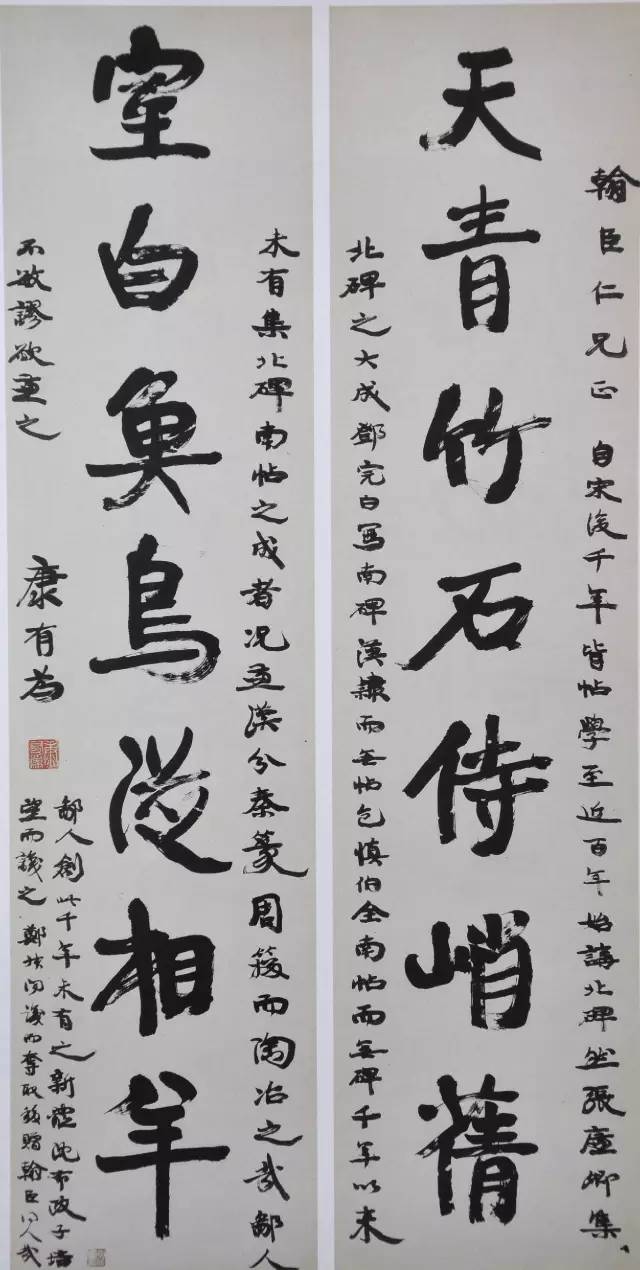 翰臣仁兄正 自宋後千年皆帖學至近百年始講北碑然張廉卿集
天青竹石侍峭蒨
北碑之大成鄧完白寫南碑漢隸而無帖包慎伯全南帖而無碑千年以來
未有集北碑南帖之成者況兼漢分秦篆周籀而陶冶之哉鄙人
室白魚鳥從相羊
不敏謬欲兼之
康有為
鄙人創此千年未有之新體沈布政子培
望而識之鄭叔問識而奪取贈翰臣